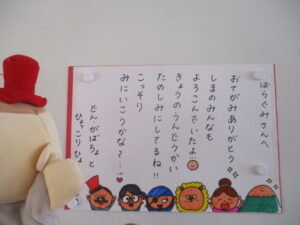 ばらぐみさんへ
おてがみありがとう
しまのみんなも
よろこんでいたよ
きょうのうんどうかい
たのしみにしてるね!!
こっそり
みにいこうかな〜…!
どんがばちょと
ひょっこりひょ